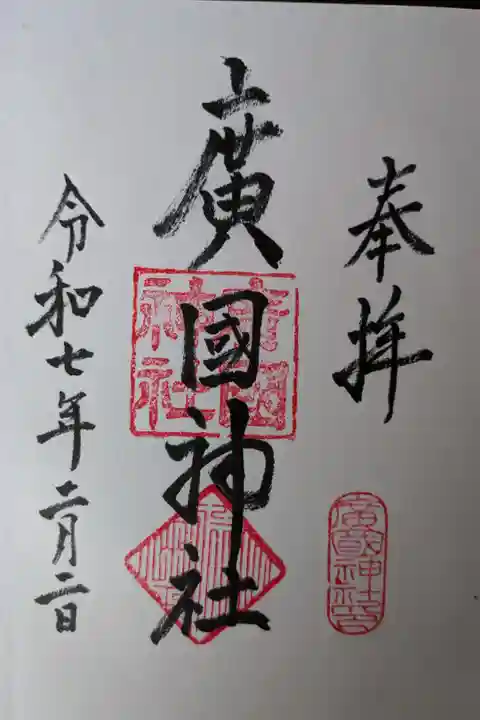 奉拝
廣國神社
令和七年二月二日
廣國神社